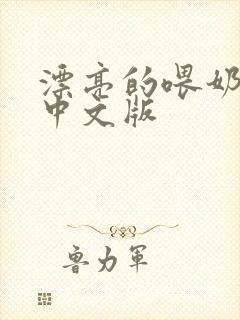 漂亮的喂奶
中文版
鲁力军